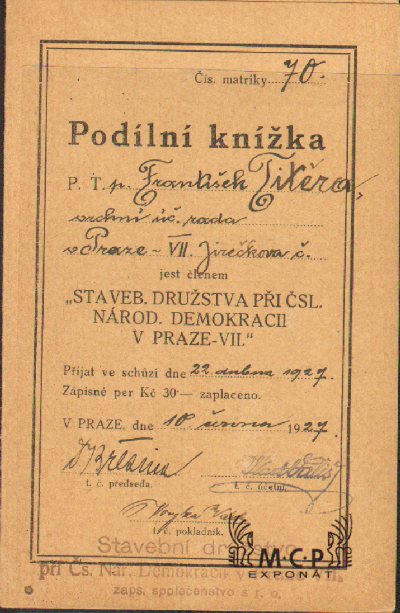 Čís. matriky 70.
Podílní knížka
P. T. p. František Tikéra,
vrchní úč. rada
v Praze - VII. Jirečkova č.
jest členem
„STAVEB. DRUŽSTVA PŘI ČSL.
NÁROD. DEMOKRACII
V PRAZE-VII."
Přijat ve schůzi dne 22. dubna 1927.
Zápisné per Kč 30·— zaplaceno.
V PRAZE, dne 10. června 1927
t. č. předseda.
t. č. účetní.
t. č. pokladník.
Stavební družstvo
při Čs. Nár. Demokracii v
zaps. společenstvo s r. o.
M·C·P
EXPONÁT